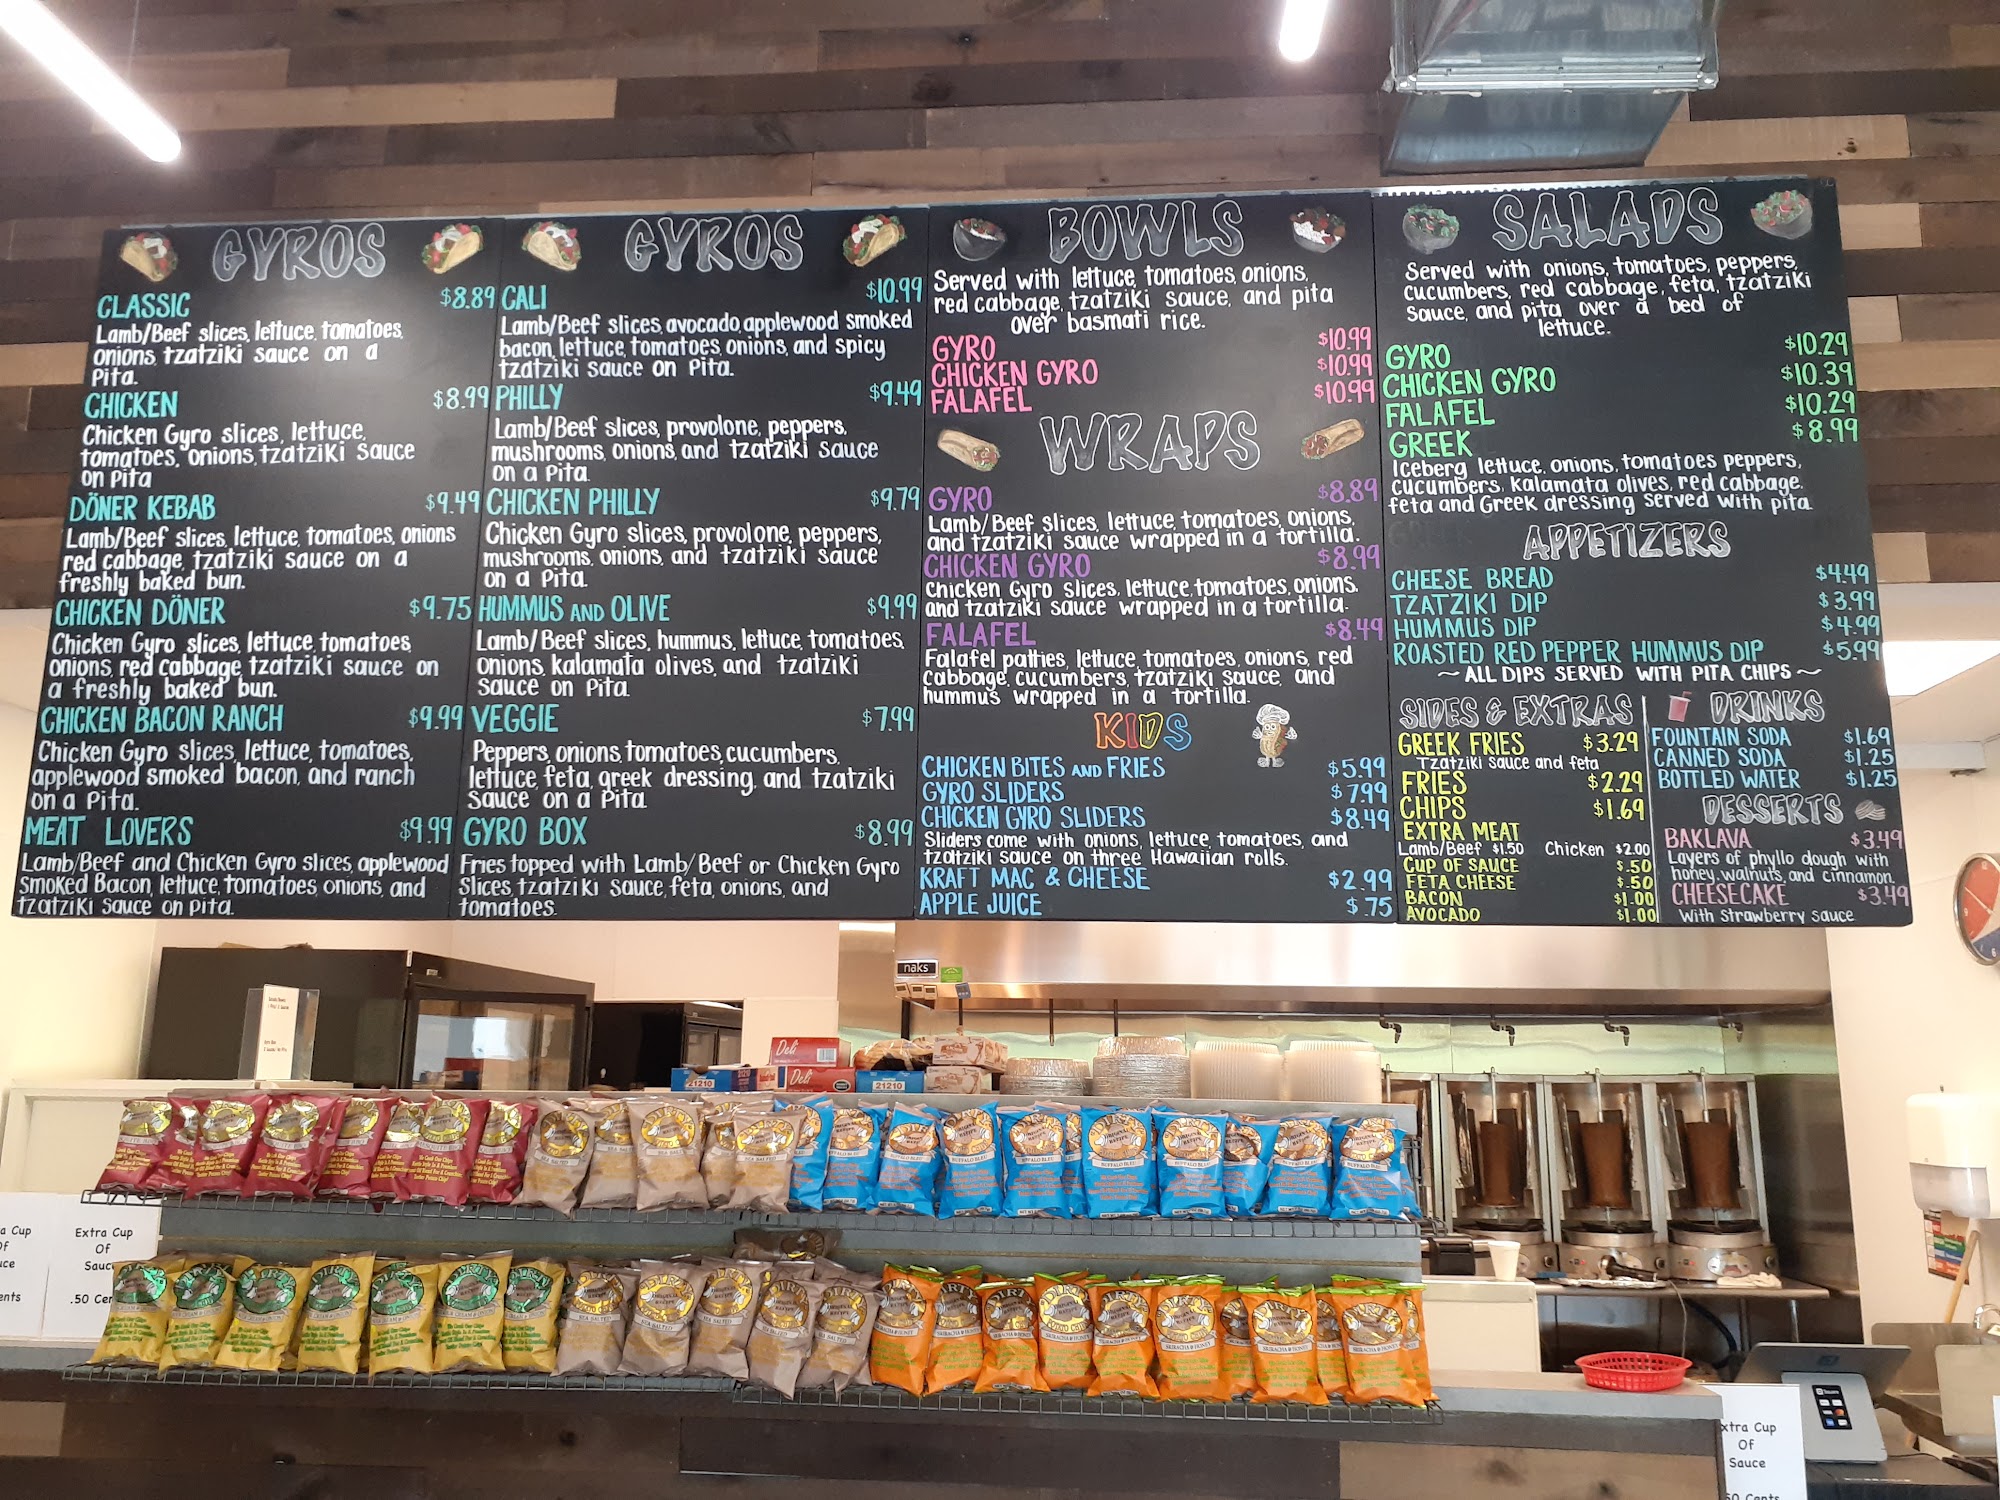 GYROS
CLASSIC $8.89
Lamb/Beef slices, lettuce, tomatoes,
onions, tzatziki sauce on a
Pita.
CHICKEN $8.99
Chicken Gyro slices, lettuce,
tomatoes, onions, tzatziki sauce
on Pita
DÖNER KEBAB $9.49
Lamb/Beef slices, lettuce, tomatoes, onions
red cabbage, tzatziki sauce on a
freshly baked bun.
CHICKEN DÖNER $9.75
Chicken Gyro slices, lettuce, tomatoes,
onions, red cabbage, tzatziki sauce on
a freshly baked bun.
CHICKEN BACON RANCH $9.99
Chicken Gyro slices, lettuce, tomatoes,
applewood smoked bacon, and ranch
on a Pita.
MEAT LOVERS $9.99
Lamb/Beef and Chicken Gyro slices, applewood
Smoked Bacon, lettuce, tomatoes onions, and
tzatziki sauce on pita.
GYROS
CALI $10.99
Lamb/Beef slices, avocado, applewood smoked
bacon, lettuce, tomatoes, onions, and spicy
tzatziki sauce on Pita.
PHILLY $9.49
Lamb/Beef slices, provolone, peppers,
mushrooms, onions, and tzatziki sauce
on a Pita.
CHICKEN PHILLY $9.79
Chicken Gyro slices, provolone, peppers,
mushrooms, onions, and tzatziki sauce
on a Pita.
HUMMUS AND OLIVE $9.99
Lamb/Beef slices, hummus, lettuce, tomatoes,
onions, kalamata olives, and tzatziki
sauce on Pita.
VEGGIE $7.99
Peppers, onions, tomatoes, cucumbers,
lettuce, feta, greek dressing, and tzatziki
sauce on a Pita
GYRO BOX $8.99
Fries topped with Lamb/Beef or Chicken Gyro
Slices, tzatziki sauce, feta, onions, and
tomatoes.
BOWLS
Served with lettuce, tomatoes, onions,
red cabbage, tzatziki sauce, and pita
over basmati rice.
GYRO $10.99
CHICKEN GYRO $10.99
FALAFEL $10.99
WRAPS
GYRO $8.89
Lamb/Beef slices, lettuce, tomatoes, onions,
and tzatziki sauce wrapped in a tortilla.
CHICKEN GYRO $8.99
Chicken Gyro slices, lettuce, tomatoes, onions,
and tzatziki sauce wrapped in a tortilla.
FALAFEL $8.49
Falafel patties, lettuce, tomatoes, onions, red
cabbage, cucumbers, tzatziki sauce, and
hummus wrapped in a tortilla.
KIDS
CHICKEN BITES AND FRIES $5.99
GYRO SLIDERS $7.99
CHICKEN GYRO SLIDERS $8.49
Sliders come with onions, lettuce, tomatoes, and
tzatziki sauce on three Hawaiian rolls.
KRAFT MAC & CHEESE $2.99
APPLE JUICE $.75
SALADS
Served with onions, tomatoes, peppers,
cucumbers, red cabbage, feta, tzatziki
sauce, and pita over a bed of
lettuce.
GYRO $10.29
CHICKEN GYRO $10.39
FALAFEL $10.29
GREEK $8.99
Iceberg lettuce, onions, tomatoes peppers,
cucumbers, kalamata olives, red cabbage,
feta and Greek dressing served with pita.
APPETIZERS
CHEESE BREAD $4.49
TZATZIKI DIP $3.99
HUMMUS DIP $4.99
ROASTED RED PEPPER HUMMUS DIP $5.99
~ALL DIPS SERVED WITH PITA CHIPS~
SIDES & EXTRAS
GREEK FRIES $3.29
Tzatziki sauce and feta
FRIES $2.29
CHIPS $1.69
EXTRA MEAT
Lamb/Beef $1.50 Chicken $2.00
CUP OF SAUCE $.50
FETA CHEESE $.50
BACON $1.00
AVOCADO $1.00
DRINKS
FOUNTAIN SODA $1.69
CANNED SODA $1.25
BOTTLED WATER $1.25
DESSERTS
BAKLAVA $3.49
Layers of phyllo dough with
honey, walnuts, and cinnamon.
CHEESECAKE $3.49
With strawberry sauce
naks
Deli
Deli
21210
21210
DIRTY
SEA SALTED
BUFFALO BLEU
DIRTY
SEA SALTED
SRIRACHA & HONEY
Extra Cup
Of
Sauce
.50 Cen
a Cup
Of
uce
ents
xtra Cup
Of
Sauce
50 Cents